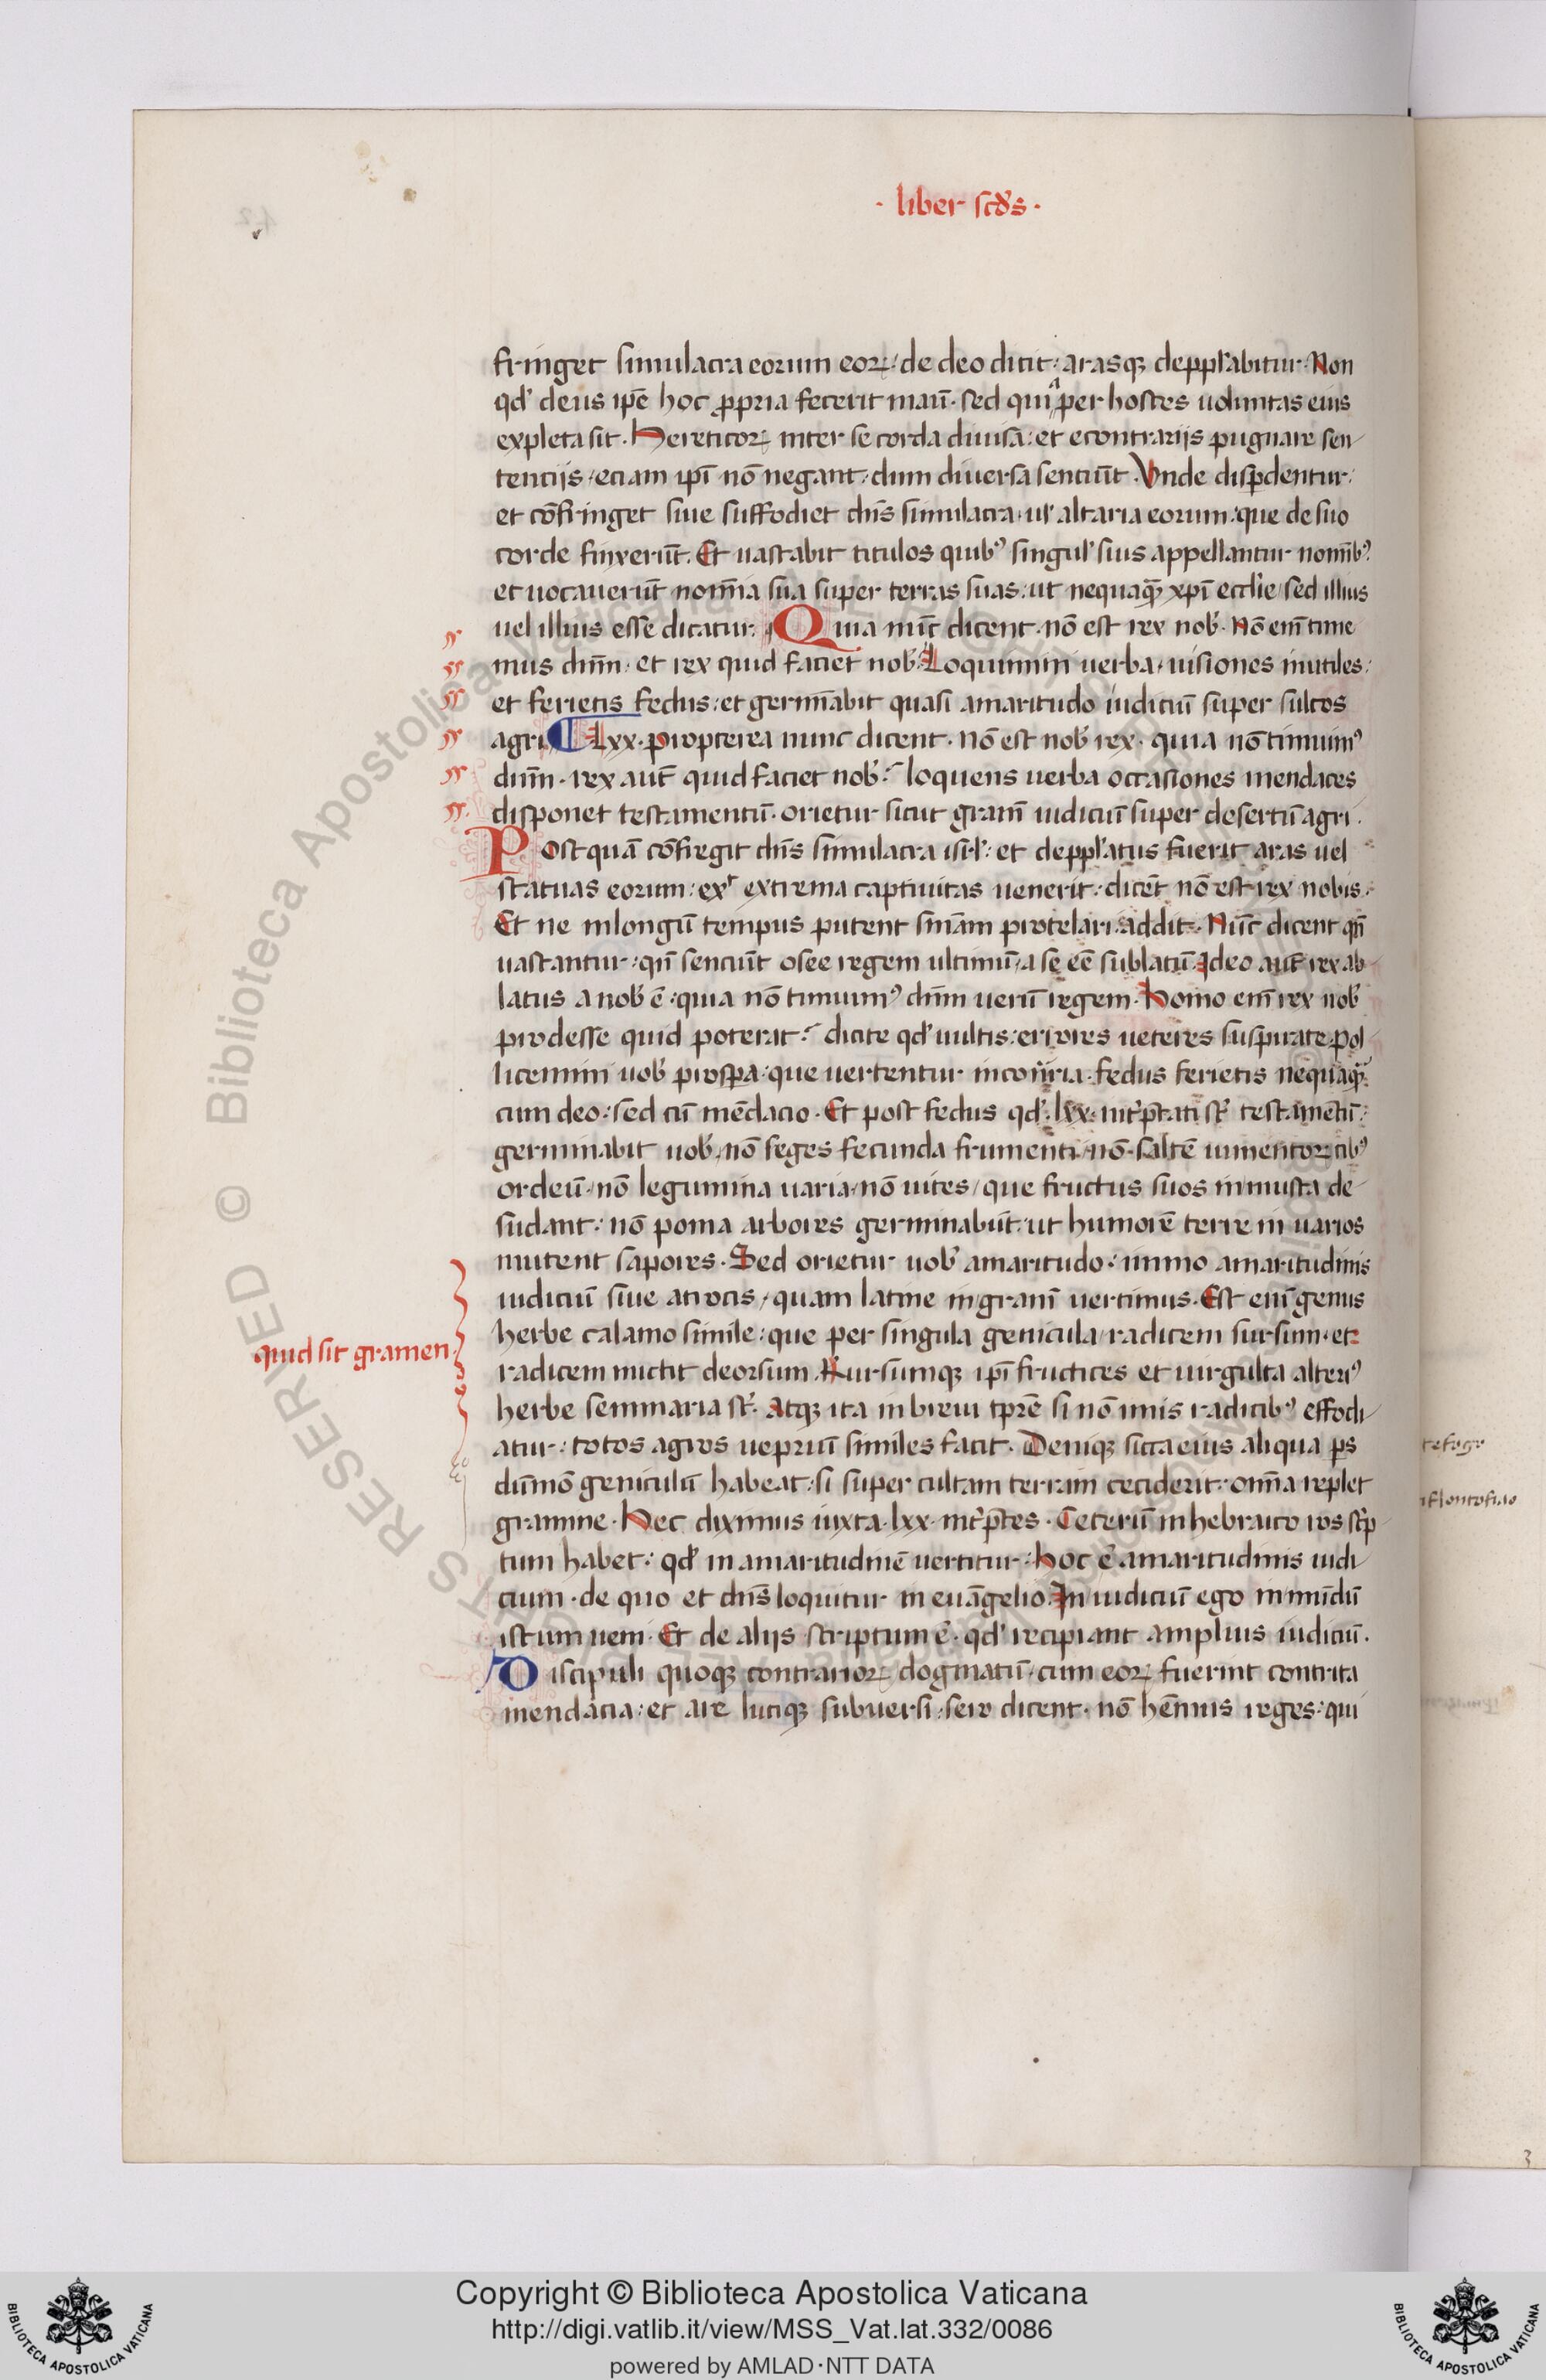 · liber scds ·
fringet simulacra eorum eoꝝ: de deo dicit: arasqꝫ depplabitur. Non
qd' deus ipē hoc ꝓpria fecerit manū. sed quia per hostes uoluntas eius
expleta sit. Hereticoꝝ inter se corda diuisa: et econtrarijs pugnare sen-
tencijs: eciam ipī nō negant: dum diuersa senciūt. Vnde disꝑdentur:
et cōfringet siue suffodiet dn̄s simulacra. ul' altaria eorum: que de suo
corde finxerūt. Et uastabit titulos quibꝰ singul' suis appellantur nomībꝰ.
et uocauerūt nomīa sua super terras suas: ut nequaqꝫ̄ xpī ecclie sed illius
vel illius esse dicatur. Quia nūc dicent. nō est rex nob'. Nō em̄ time
mus dnm̄: et rex quid faciet nob'. Loquimini uerba uisiones inutiles:
et ferietis fedus: et germīabit quasi amaritudo iudiciū super sulcos
agri. Lxx. propterea nunc dicent. nō est nob' rex. quia nō timuimꝰ
dnm̄. rex aut̄ quid faciet nob'? loquens uerba occasiones mendaces
disponet testamentū. orietur sicut gram̄ iudiciū super desertū agri.
Postquā cōfregit dn̄s simulacra isrl': et depplatus fuerit aras uel
statuas eorum: ex extrema captiuitas uenerit: dicēt nō est rex nobis.
Et ne inlongū tempus putent sniam protelari: addit. Nūc dicent qn̄
uastantur: qn̄ senciūt osee regem ultimū a se eē sublatū. Ideo aut̄ rex ab-
latus a nob' ē: quia nō timuimꝰ dnm̄ uerū regem. Homo em̄ rex nob'
prodesse quid poterat? dicite qd' uultis: errores ueteres suspirate. pol-
licemini uob' prosꝑa: que uertentur incōtria. fedus ferietis nequaqꝫ̄
cum deo: sed cū mēdacio. Et post fedus qd'. lxx. int'p̄tati st' testamētū:
germinabit uob' nō seges fecunda frumenti nō saltē iumentoꝝ cibꝰ
ordeū. nō legumina uaria nō uites, que fructus suos inmusta de-
sudant: nō poma arbores germinabūt. ut humorē terre in uarios
mutent sapores. Sed orietur uob' amaritudo: immo amaritudinis
iudiciū siue atrocis, quam latine in gram̄ vertimus. Est enī genus
herbe calamo simile: que per singula genicula radicem sursum. et
quid sit gramen
radicem mictit deorsum. Rursumqꝫ ipī fructices et uirgulta alteriꝰ
herbe seminaria st'. Atqꝫ ita in breui tprē si nō imis radicibꝰ effodi-
atur: totos agros uepriū similes facit. Deniqꝫ sicca eius aliqua ꝑs
dūmō geniculū habeat: si super cultam terram ceciderit: om̄ia replet
gramine. Hec diximus iuxta. lxx. int'p̄tes. Ceterū in hebraico ros sc'p
tum habet: qd' in amaritudinē uertitur. hoc ē amaritudinis iudi
cium. de quo et dn̄s loquitur in euāgelio. In iudiciū ego in mūdū
istum ueni. Et de alijs scriptum ē. qd' recipiant amplius iudiciū.
Discipuli quoqꝫ contrarioꝝ dogmatū. cum eoꝝ fuerint contrita
mendacia: et are luciqꝫ subuersi: sero dicent. nō hēmus reges: qui
Copyright © Biblioteca Apostolica Vaticana
http://digi.vatlib.it/view/MSS_Vat.lat.332/0086
powered by AMLAD·NTT DATA